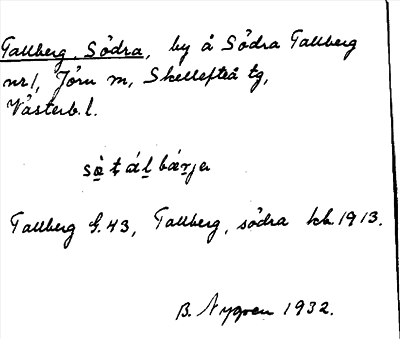 Tallberg, Södra, by å Södra Tallberg
nr 1, Jörn sn, Skellefteå tg,
Västerb. l.
Tallberg G. 43, Tallberg, södra kk. 1913.
B. Nygren 1932.